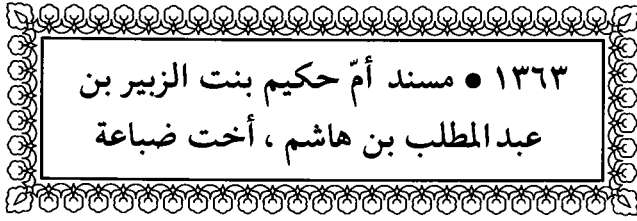 ١٣٦٣ • مسند أمّ حكيم بنت الزبير بن
عبد المطلب بن هاشم ، أخت ضباعة